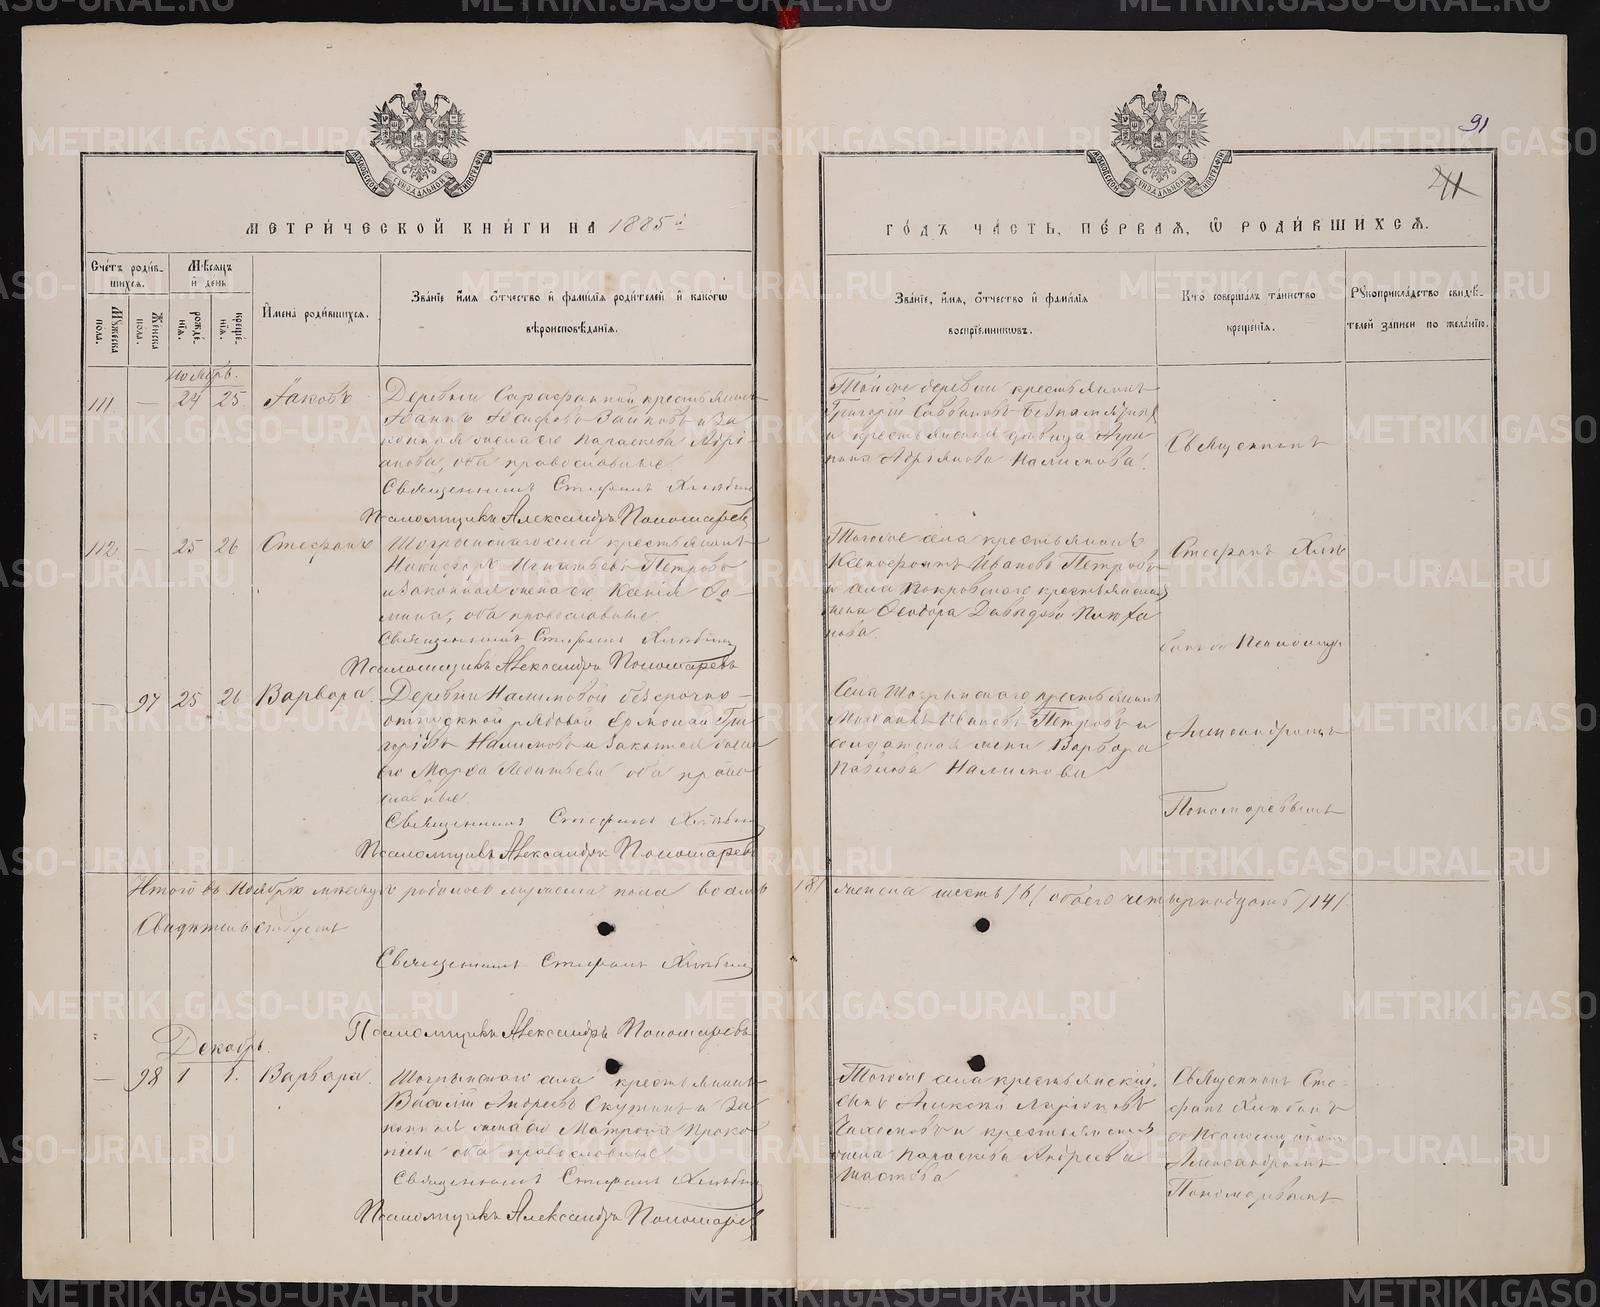 91
41
МОСКОВСКОЙ СѴНОДАЛЬНОЙ ТИПОГРАФІИ
МОСКОВСКОЙ СѴНОДАЛЬНОЙ ТИПОГРАФІИ
МЕТРИ́ЧЕСКОЙ КНИ́ГИ НА 1885 й
ГО́ДЪ ЧА́СТЬ, ПЕ́РВАѦ, Ѡ РОДИ́ВШИХСѦ.
Сче́тъ роди́вшихсѧ.
Мꙋжеска пола.
Женска пола.
Мѣ́сѧцъ и҆ де́нь
рожде́нїѧ.
креще́нїѧ.
И҆мена̀ роди́вшихсѧ.
Зва́нїе и҆́мѧ ѻ҆́тчество и҆ фами́лїѧ роди́телей и҆ како́гѡ
вѣроисповѣ́данїѧ.
Зва́нїе, и҆́мѧ, ѻ҆́тчество и҆ фами́лїѧ
воспрїе́мникѡвъ.
Кто̀ соверша́лъ та́инство
креще́нїѧ.
Рꙋкоприкла́дство свидѣ́телей за́писи по жела́нїю.
Ноябрь.
111 — 24 25 Іаковъ
Деревни Сарафанной крестьянинъ
Іоаннъ Іосифовъ Зайковъ и за
конная жена его Параскева Адрі-
анова, оба православные
Священникъ Стефанъ Хлѣбинъ
Псаломщикъ Александръ Пономаревъ
Тойже деревни крестьянинъ
Григорій Савватовъ Безпамятныхъ
и крестьянская дѣвица Агри
Адріанова Налимова.
Священникъ
112 — 25 26 Стефанъ
Шогрышскаго села крестьянинъ
Никифоръ Игнатьевъ Петровъ
и законная жена его Ксенія Ѳо-
мина, оба православные
Священникъ Стефанъ Хлѣбинъ
Псаломщикъ Александръ Пономаревъ
Тогоже села крестьянинъ
Ксенофонтъ Ивановъ Петровъ
и села Покровскаго крестьянская
жена Ѳеодора Давидова
Стефанъ Хлѣ
бинъ съ Псаломщи
— 97 25 26 Варвара
Деревни Налимовой безсрочно-
отпускной рядовой Ермолай Гри
горіевъ Налимовъ и законная жена
его Марѳа Леонтьева оба право
славные
Священникъ Стефанъ Хлѣбинъ
Псаломщикъ Александръ Пономаревъ
Села Шогрышскаго крестьянинъ
Ивановъ Петровъ и
солдатская жена Варвара
Павлова Налимова
Александромъ
Пономаревымъ
Итого въ Ноябрѣ мѣсяцѣ родилось мужеска пола восемь /8/ женска шесть /6/ обоего четырнадцать /14/
Свидѣтельствуютъ
Священникъ Стефанъ Хлѣбинъ
Псаломщикъ Александръ Пономаревъ
Декабрь.
— 98 1 1. Варвара.
Шогрышскаго села крестьянинъ
Василій Андреевъ Скутинъ и за
конная жена его Матрона Проко
піева оба православные
Священникъ Стефанъ Хлѣбинъ
Псаломщикъ Александръ Пономаревъ
Тогоже села крестьянскій
сынъ Алексѣй Ларіоновъ
и крестьянская
жена Параскева Андреева
Шастова
Священникъ Сте-
фанъ Хлѣбинъ
съ Псаломщикомъ
Александромъ
Пономаревымъ